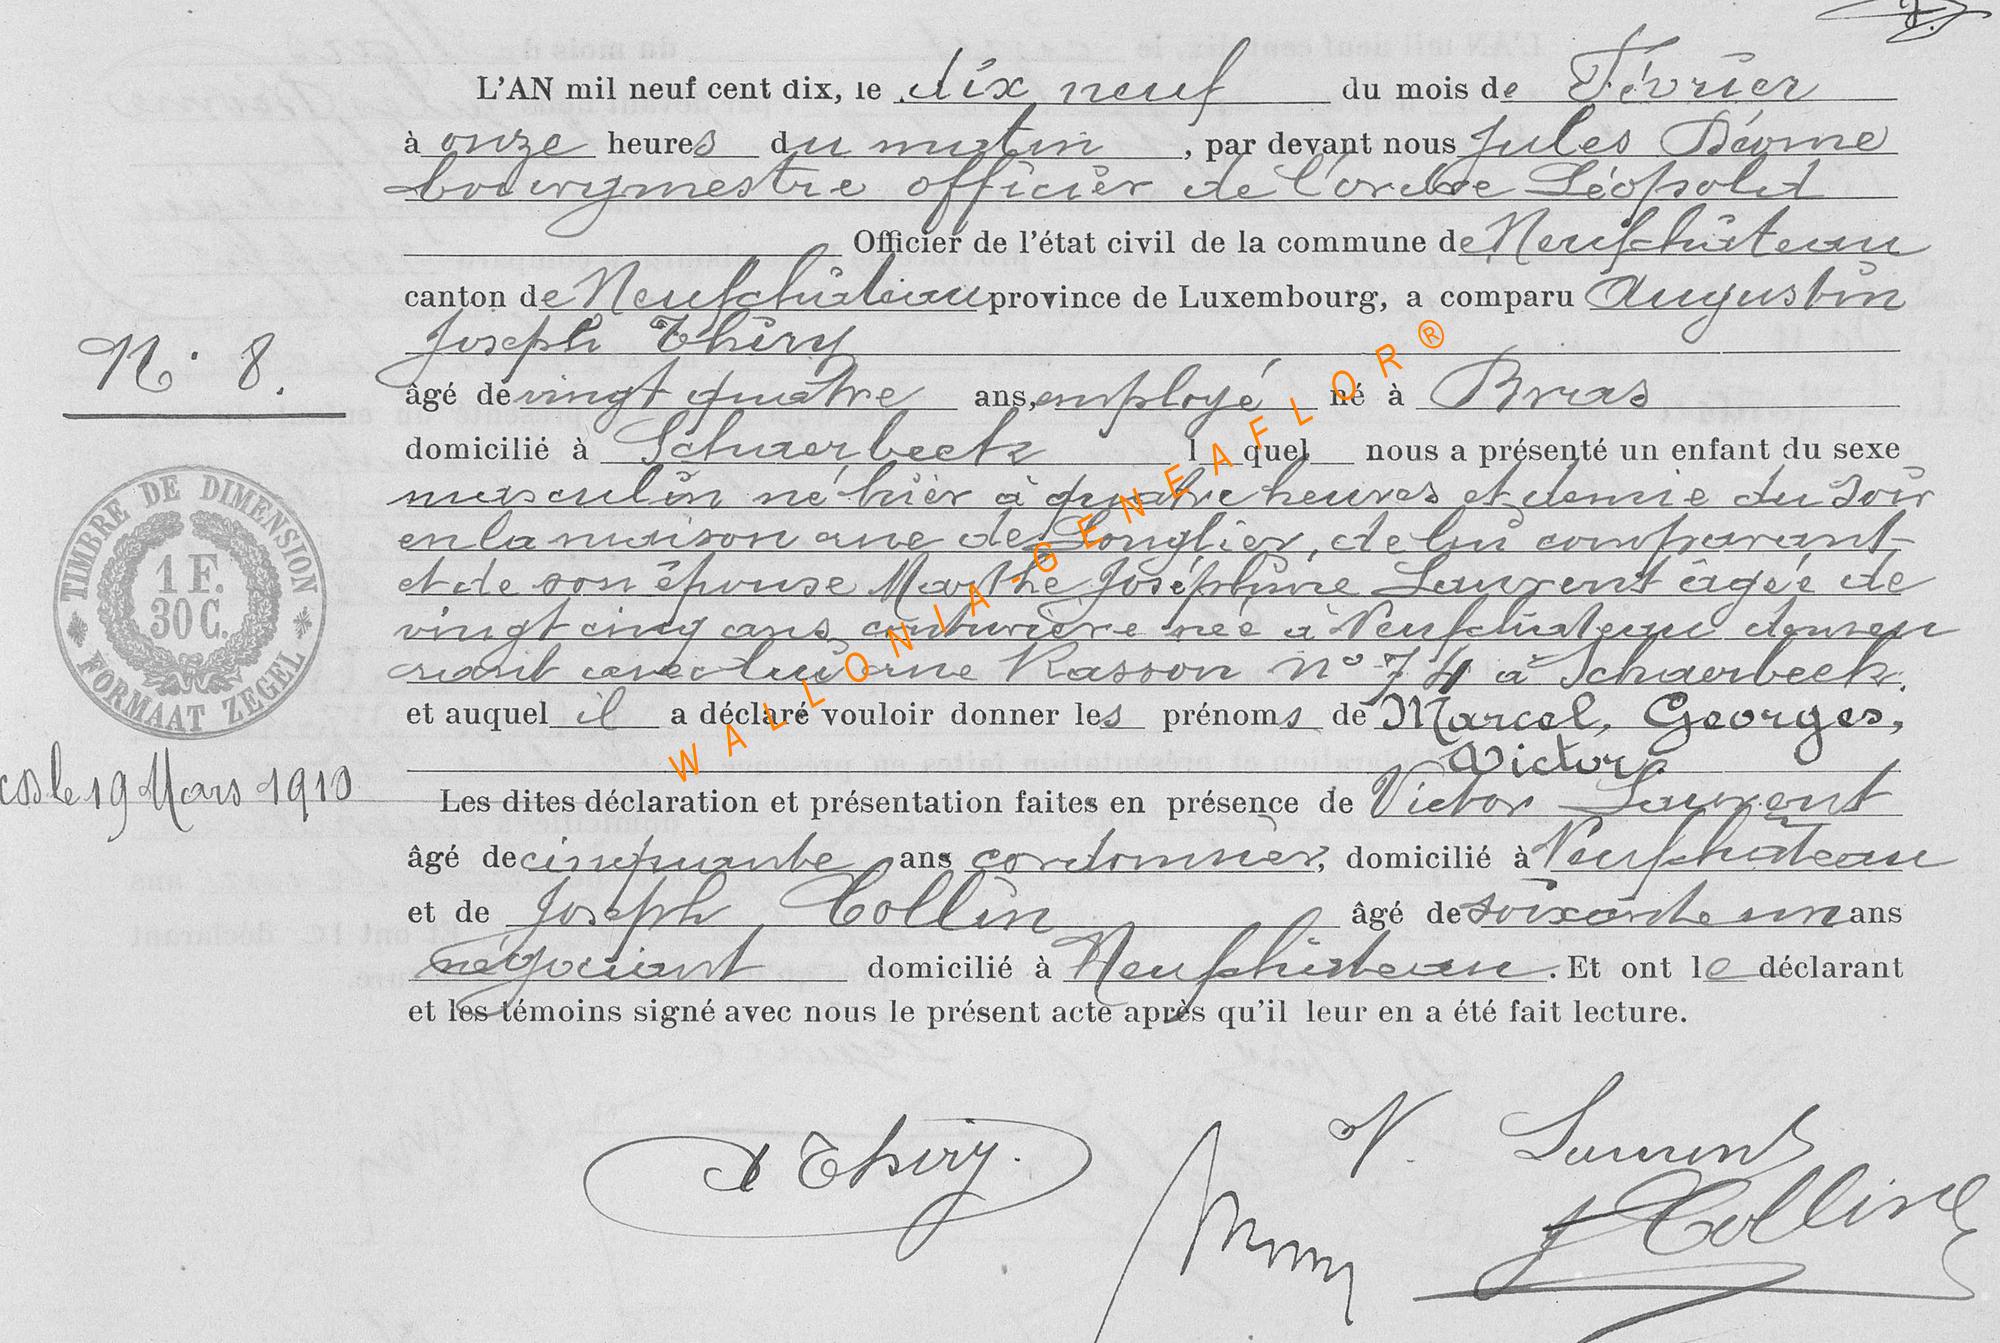 L'AN mil neuf cent dix, le dix neuf du mois de Février
à onze heures du matin, par devant nous Jules Déome
bourgmestre officier de l'ordre Léopold
Officier de l'état civil de la commune de Neufchâteau
canton de Neufchâteau province de Luxembourg, a comparu Augustin
Joseph Thiry
N° 8.
âgé de vingt quatre ans, employé né à Bras
domicilié à Schaerbeek lequel nous a présenté un enfant du sexe
masculin né hier à quatre heures et demie du soir
en la maison rue de Longlier, de lui comparant
et de son épouse Marthe Joséphine Laurent âgée de
vingt cinq ans, couturière née à Neufchâteau demeu
rant avec lui rue Rasson n° 74 à Schaerbeek.
et auquel il a déclaré vouloir donner les prénoms de Marcel, Georges,
Victor.
TIMBRE DE DIMENSION
1 F.
30 C.
FORMAAT ZEGEL
le 19 Mars 1910
Les dites déclaration et présentation faites en présence de Victor Laurent
âgé de cinquante ans cordonnier, domicilié à Neufchâteau
et de Joseph Collin âgé de soixante un ans
négociant domicilié à Neufchâteau. Et ont le déclarant
et les témoins signé avec nous le présent acte après qu'il leur en a été fait lecture.
A Thiry.
V. Laurent
J Collin
WALLONIA-GENEAFLOR®